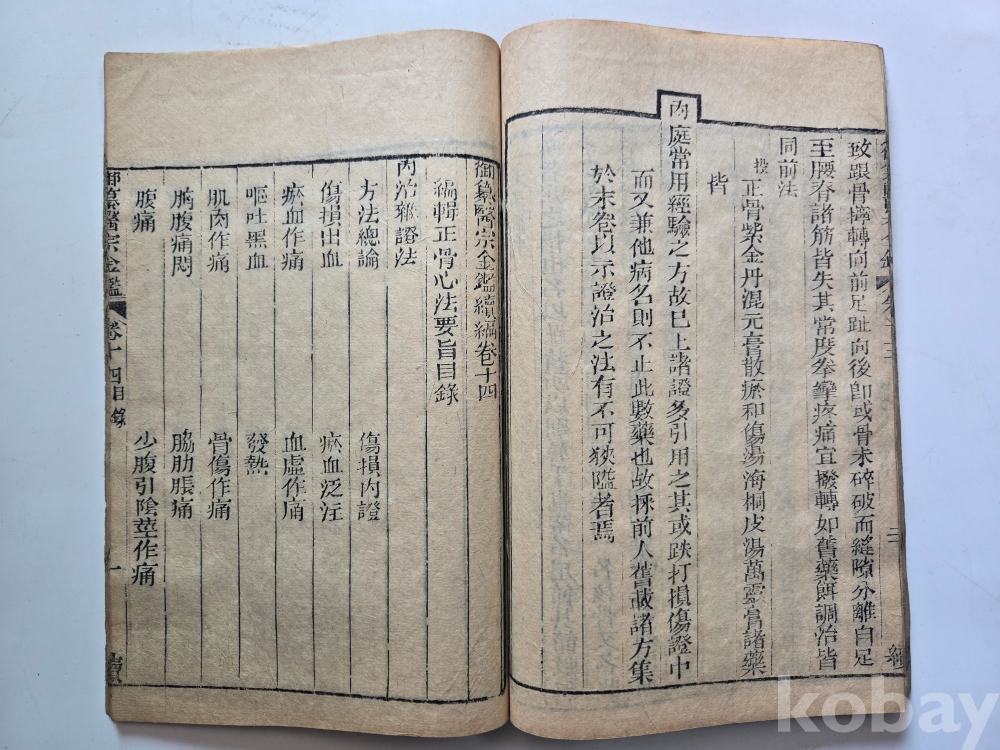 致跟骨擰轉向前足趾向後卽或骨未碎破而縫隙分離自足
至腰脊諸筋皆失其常度拳攣疼痛宜撥轉如舊藥餌調治皆
同前法
按正骨紫金丹混元膏散瘀和傷湯海桐皮湯萬靈膏諸藥
皆
內庭常用經驗之方故巳上諸證多引用之其或跌打損傷證中
而又兼他病名則不止此數藥也故採前人舊載諸方集
於末卷以示證治之法有不可狹隘者焉
三
續
御纂醫宗金鑑續編卷十四
編輯正骨心法要旨目錄
內治雜證法
方法總論
傷損內證
傷損出血
瘀血泛注
瘀血作痛
血虛作痛
嘔吐黑血
發熱
肌肉作痛
骨傷作痛
胸腹痛悶
脇肋脹痛
腹痛
少腹引陰莖作痛
御纂醫宗金鑑
卷十四目錄
一
續
kobay